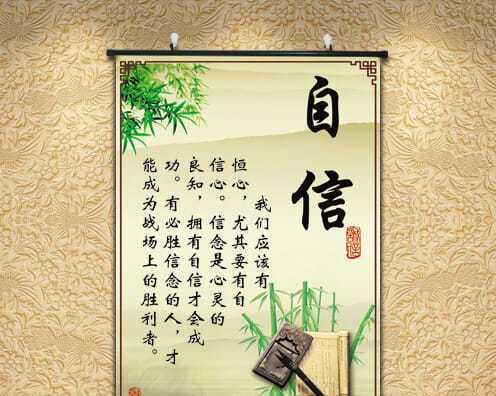 自信
我们应该有
恒心，尤其要有自
信心。信念是心灵的
良知，拥有自信才会成
功。有必胜信念的人，才
能成为战场上的胜利者。